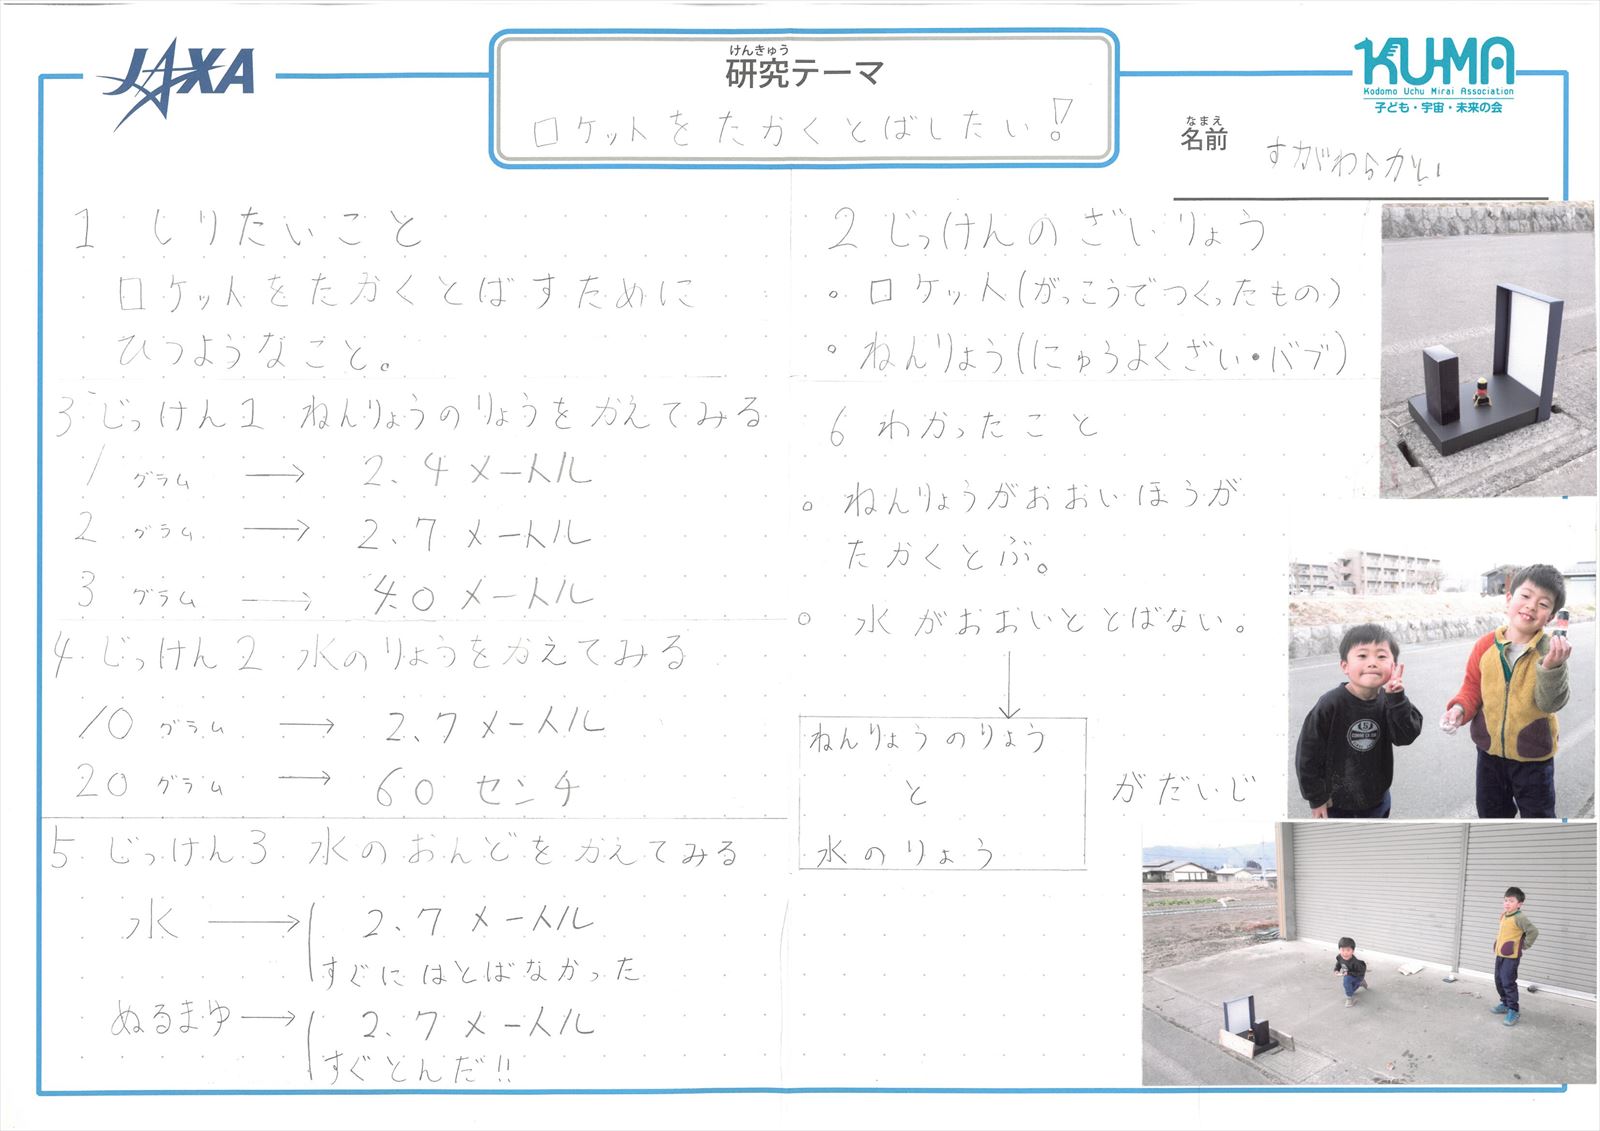 JAXA
けんきゅう
研究テーマ
ロケットをたかくとばしたい!
KU-MA
Kodomo Uchu Mirai Association
子ども・宇宙・未来の会
なまえ
名前
すがわらかい
1 しりたいこと
ロケットをたかくとばすために
ひつようなこと。
2 じっけんのざいりょう
。ロケット(がっこうでつくったもの)
。ねんりょう(にゅうよくざい・バブ)
3 じっけん1 ねんりょうのりょうをかえてみる
1 グラム → 2.4 メートル
2 グラム → 2.7 メートル
3 グラム → 4.0 メートル
4 じっけん2 水のりょうをかえてみる
10 グラム → 2.7 メートル
20 グラム → 60 センチ
5 じっけん3 水のおんどをかえてみる
水 → 2.7 メートル
すぐにはとばなかった
ぬるまゆ → 2.7 メートル
すぐとんだ!!
6 わかったこと
。ねんりょうがおおいほうが
たかくとぶ。
。水がおおいととばない。
ねんりょうのりょう
と
水のりょう
がだいじ